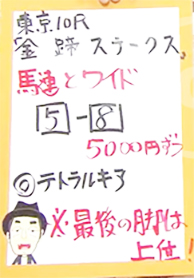 東京10R
「金蹄ステークス」
馬連とワイド
5-8
5000円ずつ
◎テトラルキア
※最後の脚は
上位!